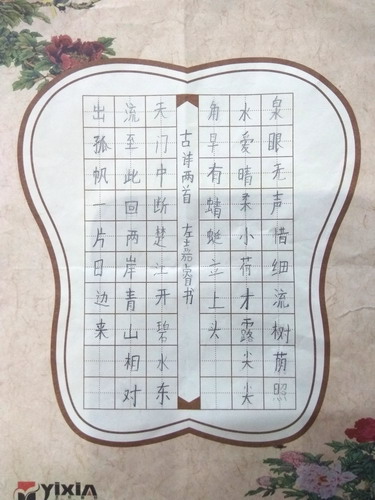 泉眼无声惜细流树荫照
水爱晴柔小荷才露尖尖
角早有蜻蜓立上头
古诗两首 左嘉睿书
天门中断楚江开碧水东
流至此回两岸青山相对
出孤帆一片日边来